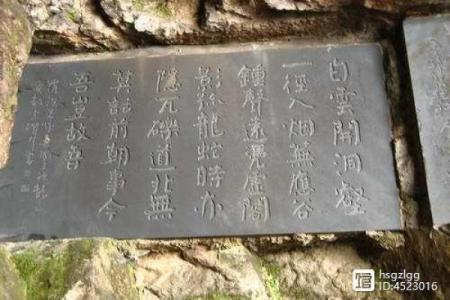 白雲開洞壑
一徑入烟蕪應谷
鍾聲遠凴虛閣
影孤龍蛇時亦
隱瓦礫道非無
莫話前朝事今
吾豈故吾
hsgzlgg
ID:4523016